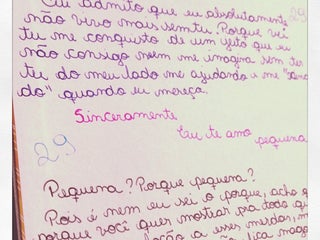 Eu admito que eu absolutamente 29
não vivo mais sem tu. Porque vc
tu me conquista de um jeito que eu
não consigo nem me imagina sem ter
tu do meu lado me ajudando e me
do" quando eu mereça.
Sinceramente
Eu te amo pequena
29
Pequena? Porque pequena?
Pois é nem eu sei o porque, acho q
porque você quer mostrar pra todo
a esses merdas,
fica